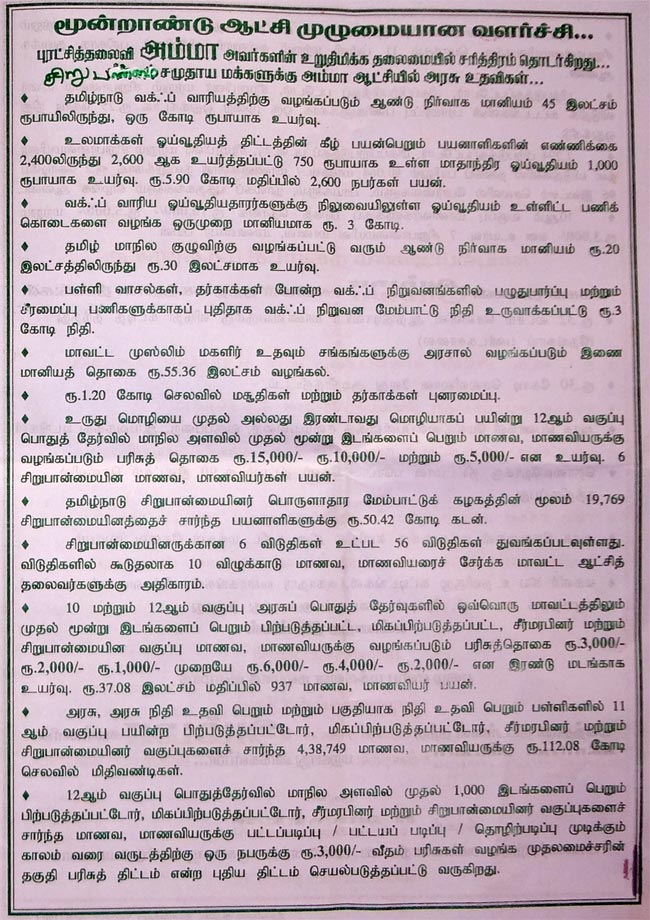 மூன்றாண்டு ஆட்சி முழுமையான வளர்ச்சி...
புரட்சித்தலைவி அம்மா அவர்களின் உறுதிமிக்க தலைமையில் சரித்திரம் தொடர்கிறது...
சிறுபான்மை சமுதாய மக்களுக்கு அம்மா ஆட்சியில் அரசு உதவிகள்...
♦ தமிழ்நாடு வக்ஃப் வாரியத்திற்கு வழங்கப்படும் ஆண்டு நிர்வாக மானியம் 45 இலட்சம்
ரூபாயிலிருந்து, ஒரு கோடி ரூபாயாக உயர்வு.
♦ உலமாக்கள் ஓய்வூதியத் திட்டத்தின் கீழ் பயன்பெறும் பயனாளிகளின் எண்ணிக்கை
2,400லிருந்து 2,600 ஆக உயர்த்தப்பட்டு 750 ரூபாயாக உள்ள மாதாந்திர ஓய்வூதியம் 1,000
ரூபாயாக உயர்வு. ரூ.5.90 கோடி மதிப்பில் 2,600 நபர்கள் பயன்.
♦ வக்ஃப் வாரிய ஓய்வூதியதாரர்களுக்கு நிலுவையிலுள்ள ஓய்வூதியம் உள்ளிட்ட பணிக்
கொடைகளை வழங்க ஒருமுறை மானியமாக ரூ. 3 கோடி.
♦ தமிழ் மாநில குழுவிற்கு வழங்கப்பட்டு வரும் ஆண்டு நிர்வாக மானியம் ரூ.20
இலட்சத்திலிருந்து ரூ.30 இலட்சமாக உயர்வு.
♦ பள்ளி வாசல்கள், தர்காக்கள் போன்ற வக்ஃப் நிறுவனங்களில் பழுதுபார்ப்பு மற்றும்
சீரமைப்பு பணிகளுக்காகப் புதிதாக வக்ஃப் நிறுவன மேம்பாட்டு நிதி உருவாக்கப்பட்டு ரூ.3
கோடி நிதி.
♦ மாவட்ட முஸ்லிம் மகளிர் உதவும் சங்கங்களுக்கு அரசால் வழங்கப்படும் இணை
மானியத் தொகை ரூ.55.36 இலட்சம் வழங்கல்.
♦ ரூ.1.20 கோடி செலவில் மசூதிகள் மற்றும் தர்காக்கள் புனரமைப்பு.
♦ உருது மொழியை முதல் அல்லது இரண்டாவது மொழியாகப் பயின்று 12ஆம் வகுப்பு
பொதுத் தேர்வில் மாநில அளவில் முதல் மூன்று இடங்களைப் பெறும் மாணவ, மாணவியருக்கு
வழங்கப்படும் பரிசுத் தொகை ரூ.15,000/- ரூ.10,000/- மற்றும் ரூ.5,000/- என உயர்வு. 6
சிறுபான்மையின மாணவ, மாணவியர்கள் பயன்.
♦ தமிழ்நாடு சிறுபான்மையினர் பொருளாதார மேம்பாட்டுக் கழகத்தின் மூலம் 19,769
சிறுபான்மையினத்தைச் சார்ந்த பயனாளிகளுக்கு ரூ.50.42 கோடி கடன்.
♦ சிறுபான்மையினருக்கான 6 விடுதிகள் உட்பட 56 விடுதிகள் துவங்கப்படவுள்ளது.
விடுதிகளில் கூடுதலாக 10 விழுக்காடு மாணவ, மாணவியரைச் சேர்க்க மாவட்ட ஆட்சித்
தலைவர்களுக்கு அதிகாரம்.
♦ 10 மற்றும் 12ஆம் வகுப்பு அரசுப் பொதுத் தேர்வுகளில் ஒவ்வொரு மாவட்டத்திலும்
முதல் மூன்று இடங்களைப் பெறும் பிற்படுத்தப்பட்ட, மிகப்பிற்படுத்தப்பட்ட, சீர்மரபினர் மற்றும்
சிறுபான்மையின வகுப்பு மாணவ, மாணவியருக்கு வழங்கப்படும் பரிசுத்தொகை ரூ.3,000/-
ரூ.2,000/- ரூ.1,000/- முறையே ரூ.6,000/- ரூ.4,000/- ரூ.2,000/- என இரண்டு மடங்காக
உயர்வு. ரூ.37.08 இலட்சம் மதிப்பில் 937 மாணவ, மாணவியர் பயன்.
♦ அரசு, அரசு நிதி உதவி பெறும் மற்றும் பகுதியாக நிதி உதவி பெறும் பள்ளிகளில் 11
ஆம் வகுப்பு பயின்ற பிற்படுத்தப்பட்டோர், மிகப்பிற்படுத்தப்பட்டோர், சீர்மரபினர் மற்றும்
சிறுபான்மையினர் வகுப்புகளைச் சார்ந்த 4,38,749 மாணவ, மாணவியருக்கு ரூ.112.08 கோடி
செலவில் மிதிவண்டிகள்.
♦ 12ஆம் வகுப்பு பொதுத்தேர்வில் மாநில அளவில் முதல் 1,000 இடங்களைப் பெறும்
பிற்படுத்தப்பட்டோர், மிகப்பிற்படுத்தப்பட்டோர், சீர்மரபினர் மற்றும் சிறுபான்மையினர் வகுப்புகளைச்
சார்ந்த மாணவ, மாணவியருக்கு பட்டப்படிப்பு / பட்டயப் படிப்பு / தொழிற்படிப்பு முடிக்கும்
காலம் வரை வருடத்திற்கு ஒரு நபருக்கு ரூ.3,000/- வீதம் பரிசுகள் வழங்க முதலமைச்சரின்
தகுதி பரிசுத் திட்டம் என்ற புதிய திட்டம் செயல்படுத்தப்பட்டு வருகிறது.